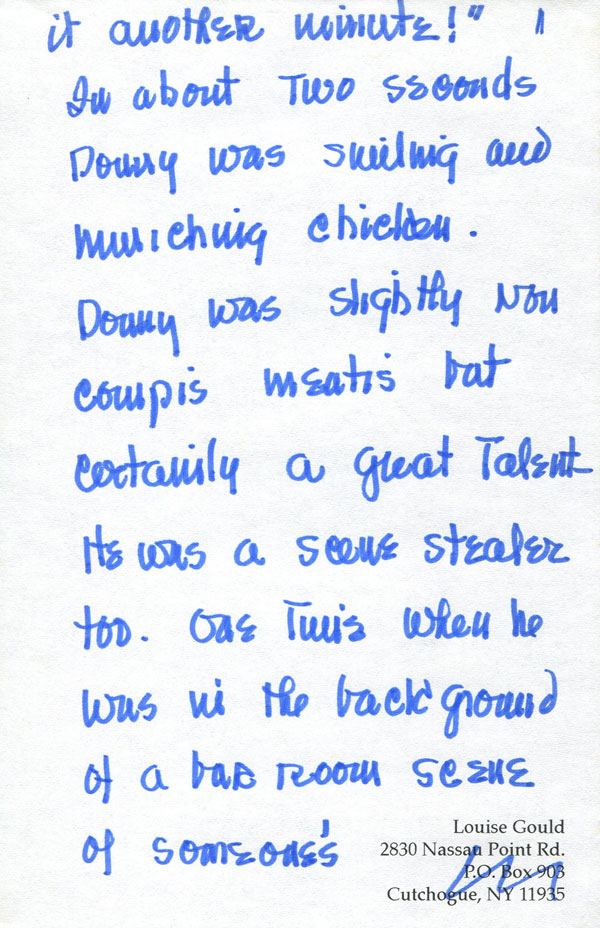 it another minute!"
In about Two seconds
Donny was smiling and
munching chicken.
Donny was slightly Non
compis mentis but
certainly a great Talent
He was a scene stealer
too. One Time when he
was in the background
of a bar room scene
of someone's
Louise Gould
2830 Nassau Point Rd.
P.O. Box 903
Cutchogue, NY 11935